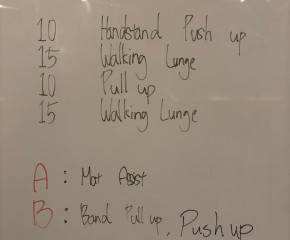 10 Handstand Push up
15 Walking Lunge
10 Pull up
15 Walking Lunge
A : Mat Assist
B : Band Pull up, Push up